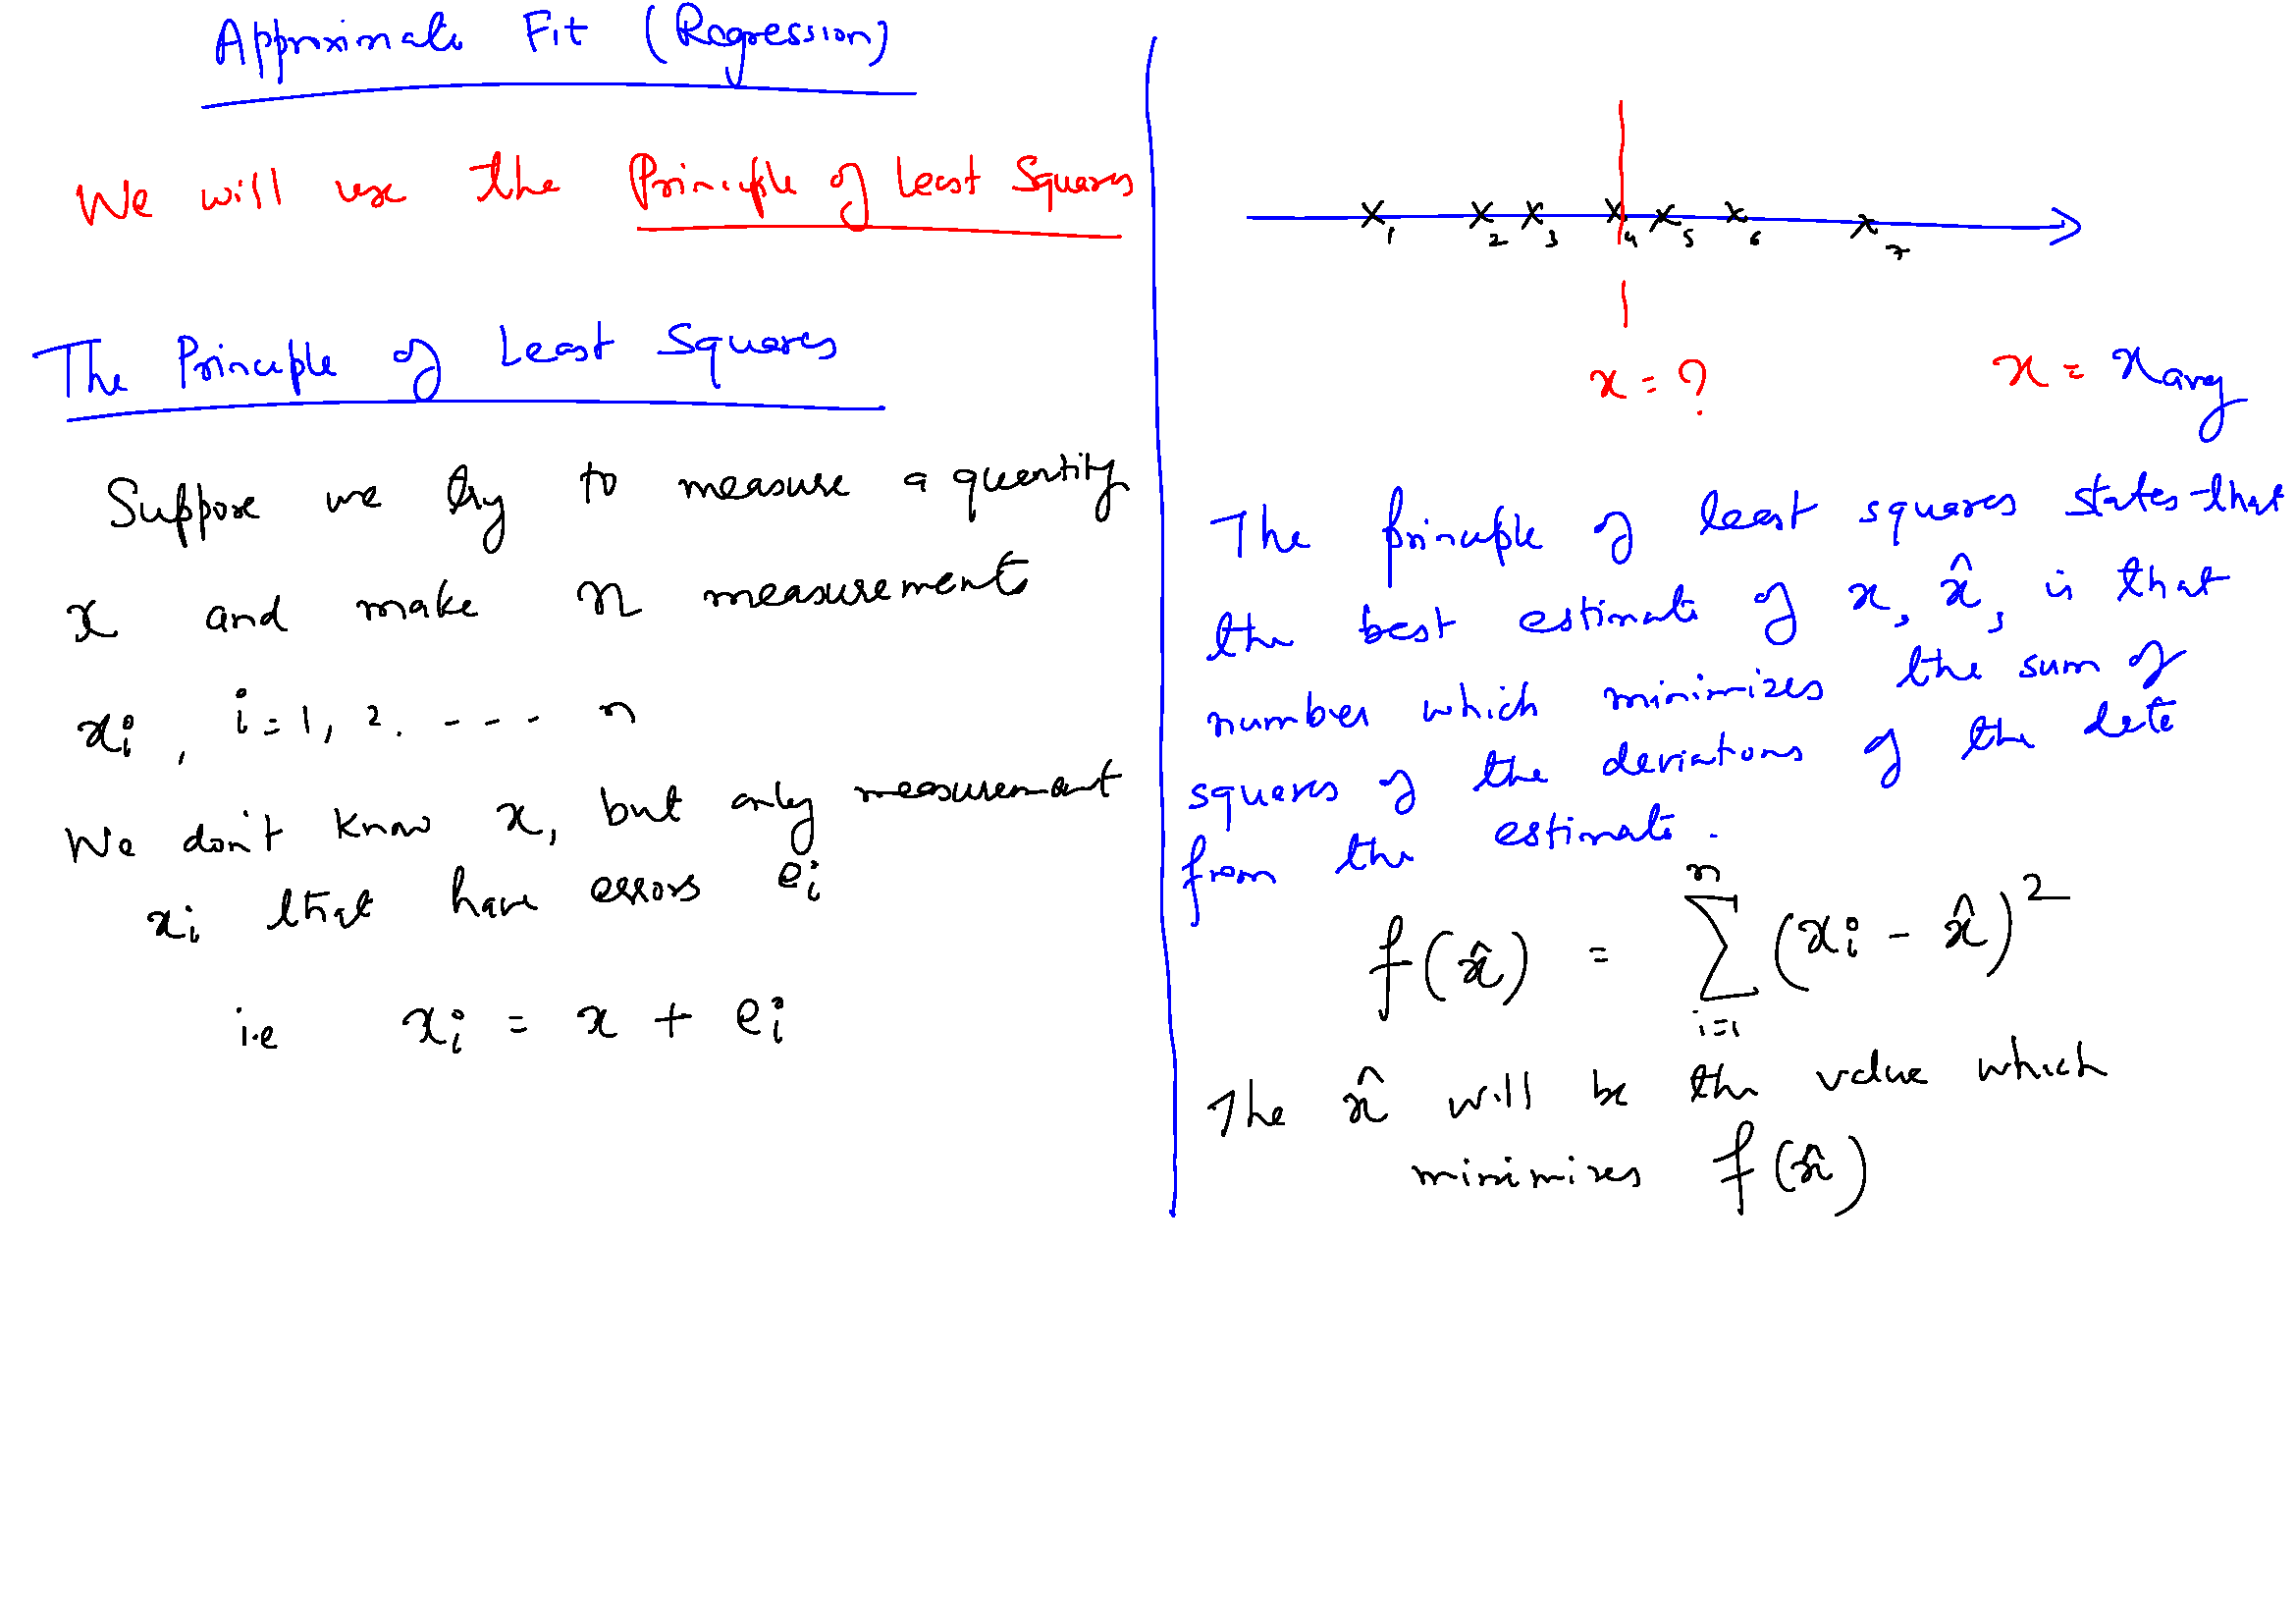 Approximate Fit (Regression)
We will use the Principle of Least Squares
The Principle of Least Squares
Suppose we try to measure a quantity
x and make n measurements
xᵢ, i = 1, 2. - - - - n
We don't know x, but only measurement
xᵢ that have errors eᵢ
i.e xᵢ = x + eᵢ
1 2 3 4 5 6 7
x = ? x = xavg
The principle of least squares states that
the best estimate of x, x̂, is that
number which minimizes the sum of
squares of the deviations of the data
from the estimate.
f(x̂) = ∑ᵢ₌₁ⁿ (xᵢ - x̂)²
The x̂ will be the value which
minimizes f(x̂)